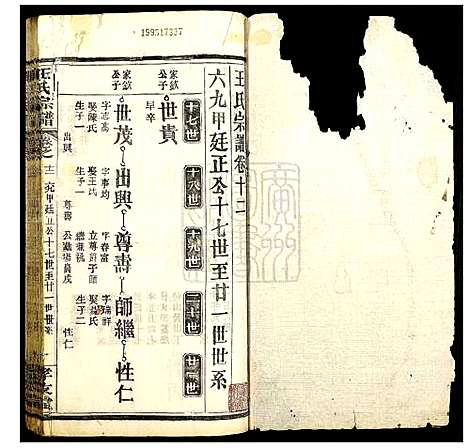 199517337
王氏宗譜卷十二
六九甲廷正公十七世至廿一世世系
十七世
十八世
十九世
二十世
廿一世
家欽公子
世貴
早卒
家欽公子
世茂
字志高
娶陳氏
生子一
出興
出興
字事均
娶王氏
生子一
尊壽
尊壽
字春富
師繼
字瑞祥
生子二
性仁
性仁
王氏宗譜
卷之十二
六九甲廷正公十七世至廿一世世系
孝友堂